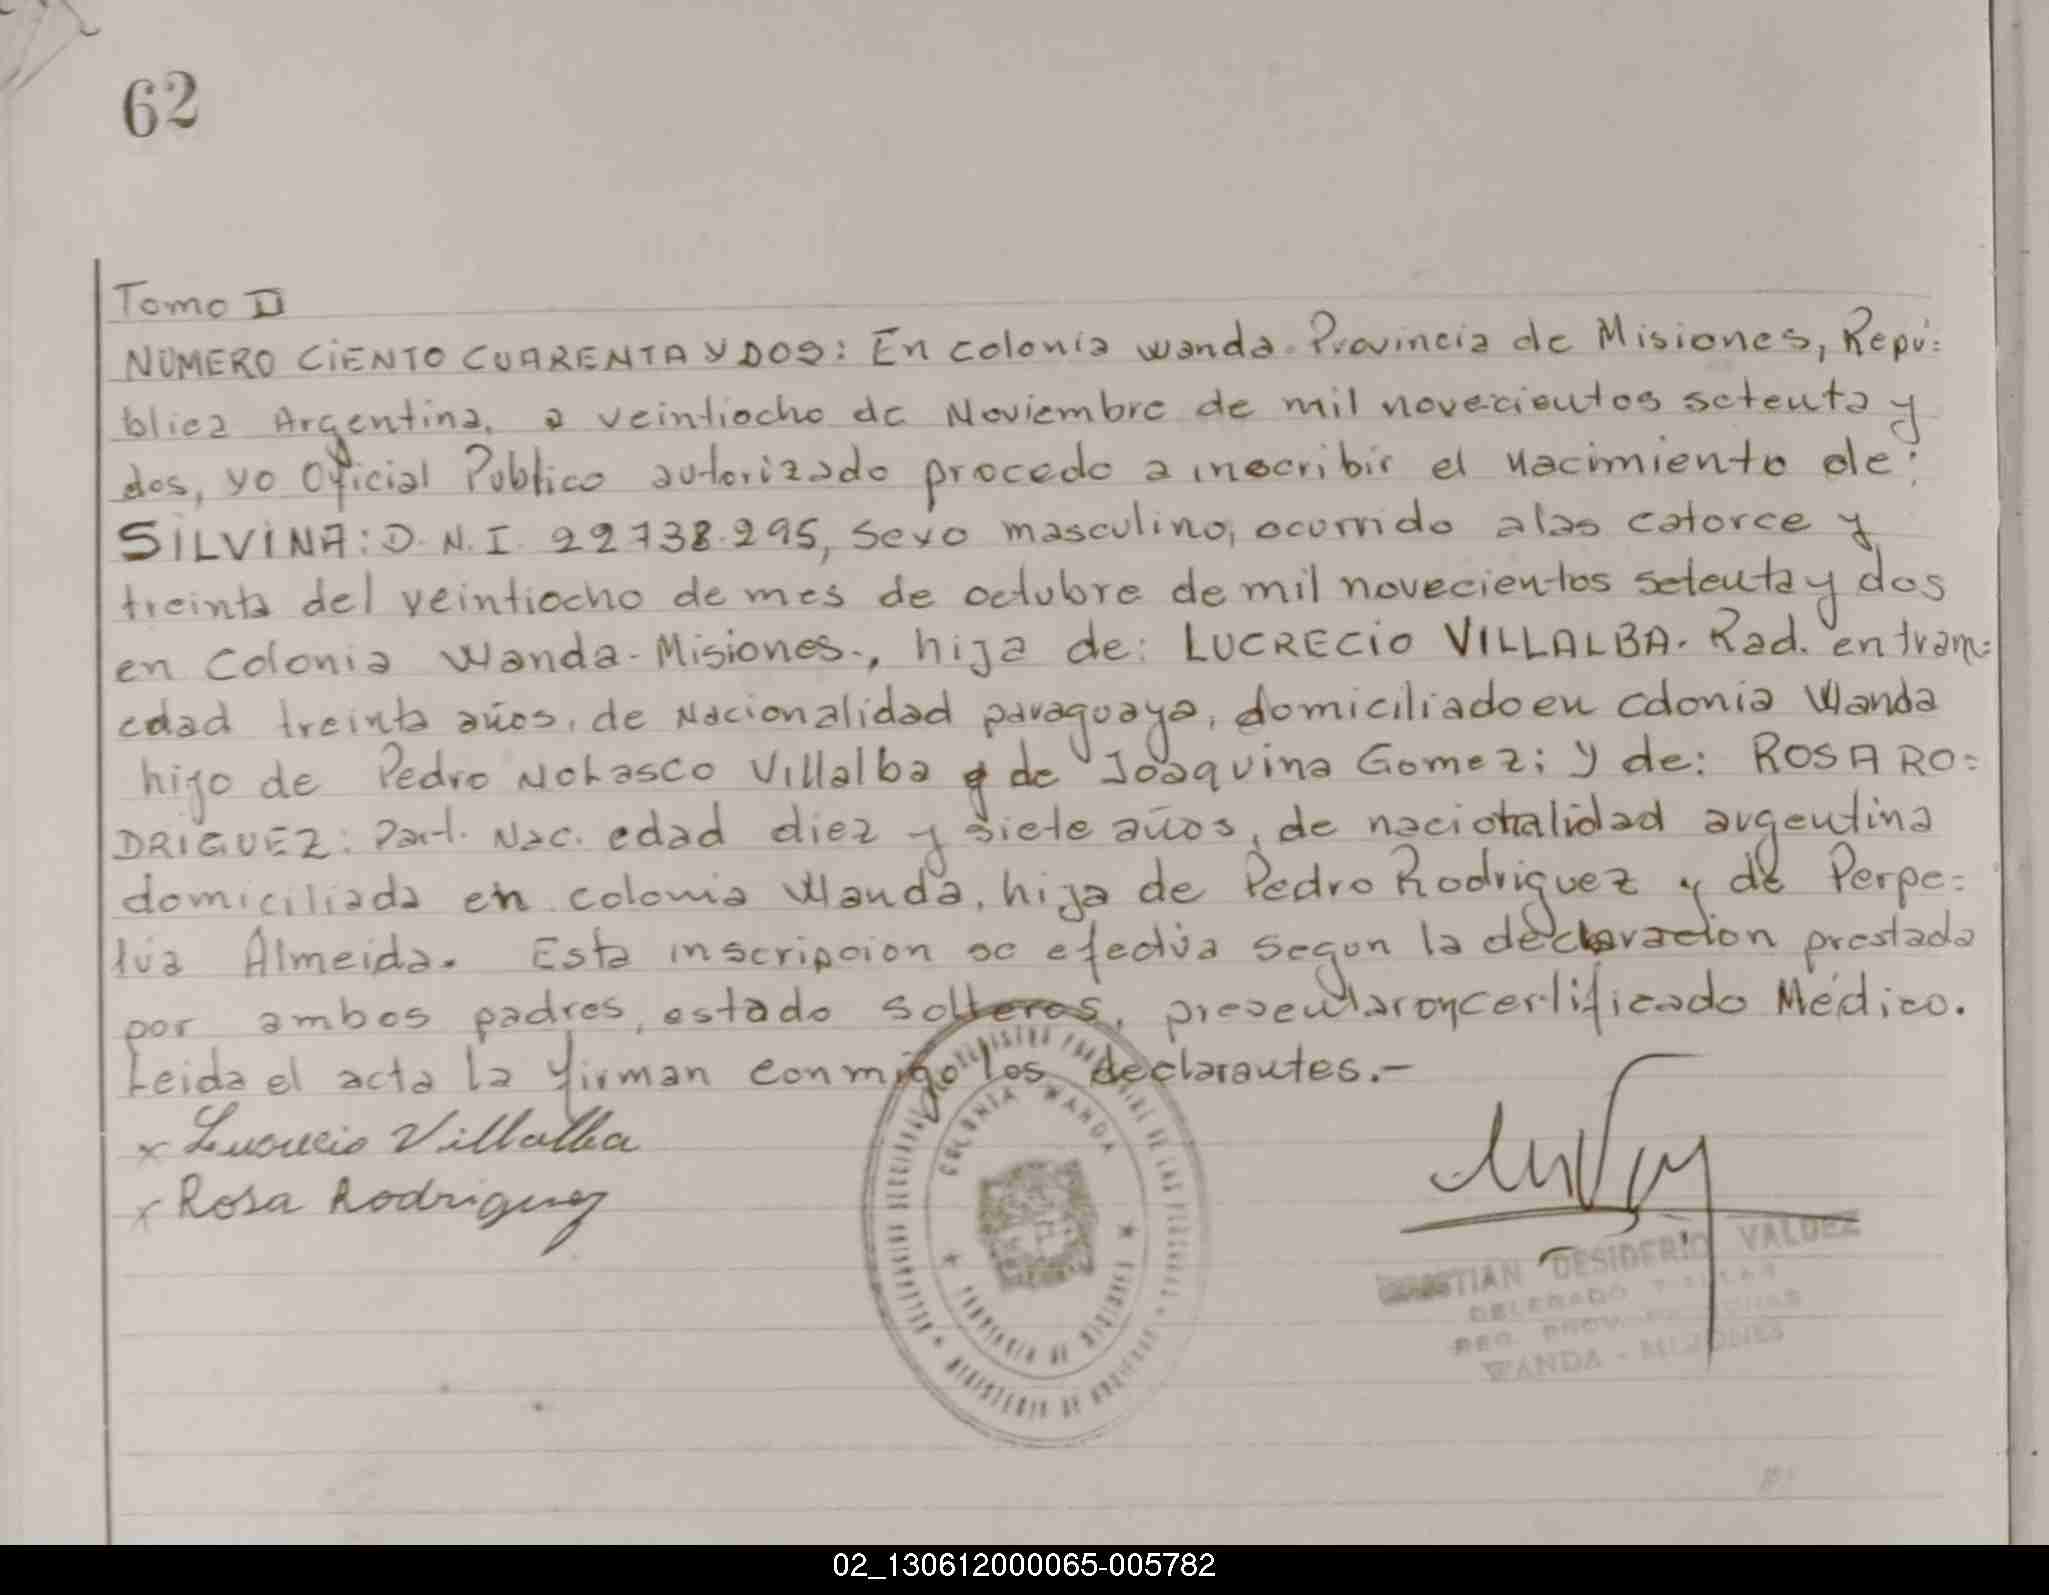 62
Tomo II
NUMERO CIENTO CUARENTA Y DOS: En colonia wanda. Provincia de Misiones, Repú=
blica Argentina, a veintiocho de Noviembre de mil novecientos setenta y
dos, yo Oficial Publico autorizado procedo a inscribir el nacimiento de:
SILVINA: D.N.I. 22738.295, sexo masculino, ocurrido a las catorce y
treinta del veintiocho de mes de octubre de mil novecientos setenta y dos
en Colonia Wanda-Misiones., hija de: LUCRECIO VILLALBA. Rad. en tram=
edad treinta años, de Nacionalidad paraguaya, domiciliado en colonia Wanda
hijo de Pedro Nolasco Villalba y de Joaquina Gomez; y de: ROSA RO=
DRIGUEZ: Part. Nac. edad diez y siete años, de nacionalidad argentina
domiciliada en colonia Wanda, hija de Pedro Rodriguez y de Perpe=
tua Almeida. Esta inscripcion se efectúa segun la declaracion prestada
por ambos padres, estado solteros, presentaron certificado Médico.
Leida el acta la firman conmigo los declarantes.-
x Lucrecio Villalba
x Rosa Rodriguez
COLONIA WANDA
PROVINCIA DE MISIONES
DE LAS PERSONAS
MINISTERIO DE GOBIERNO
DESIDERIO VALDEZ
DELEGADO TITULAR
REG. PROV. PERSONAS
WANDA - MISIONES
02_130612000065-005782